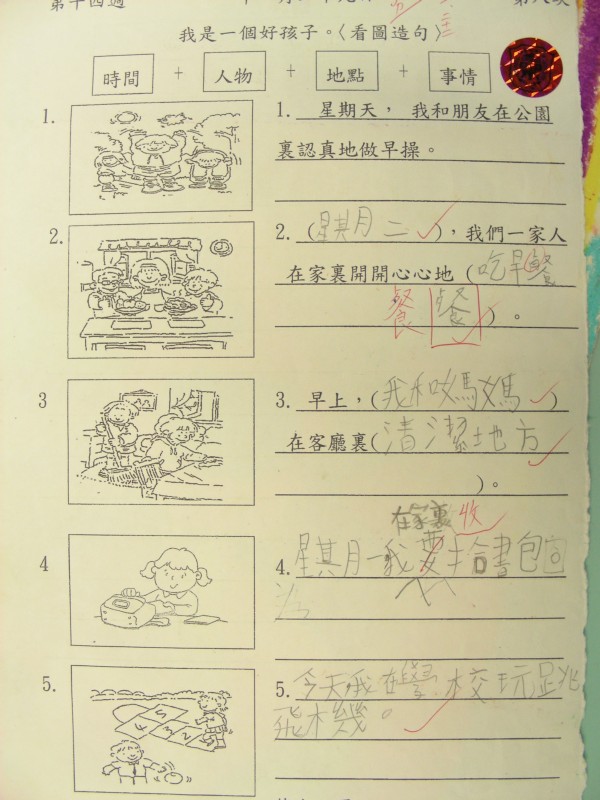 第十四週
我是一個好孩子。〈看圖造句〉
時間 + 人物 + 地點 + 事情
1. 1. 星期天，我和朋友在公園
裏認真地做早操。
2. 2. (星期二)，我們一家人
在家裏開開心心地(吃早餐
餐 餐)。
3 3. 早上，(我和媽媽)
在客廳裏(清潔地方
)。
在家裏 收
4 4. 星期一我要拾書包
5. 5. 今天我在學校玩跳
飛機。